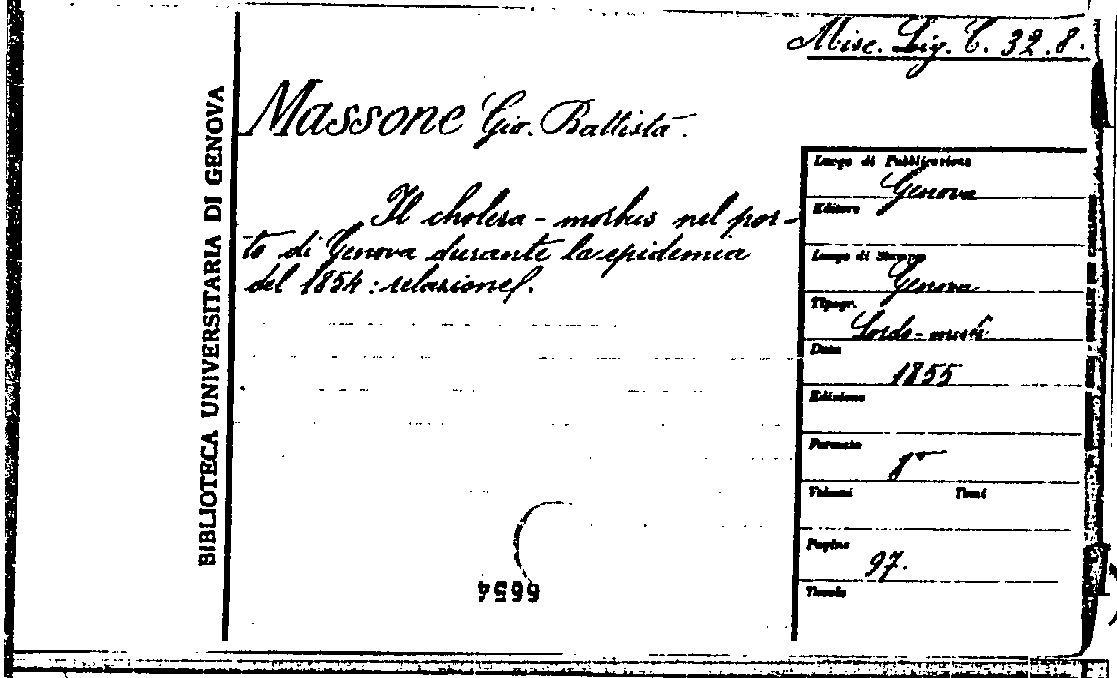 Misc. Lig. C. 32. 8.
BIBLIOTECA UNIVERSITARIA DI GENOVA
Massone Gio. Battista.
Il cholera-morbus nel por-
to di Genova durante la epidemia
del 1854: relazione.
Luogo di Pubblicazione
Genova
Editore
Luogo di Stampa
Genova
Tipogr.
Sordo-muti
Data
1855
Edizione
Formato
8°
Volumi Tomi
Pagine
97.
Tavole
6654